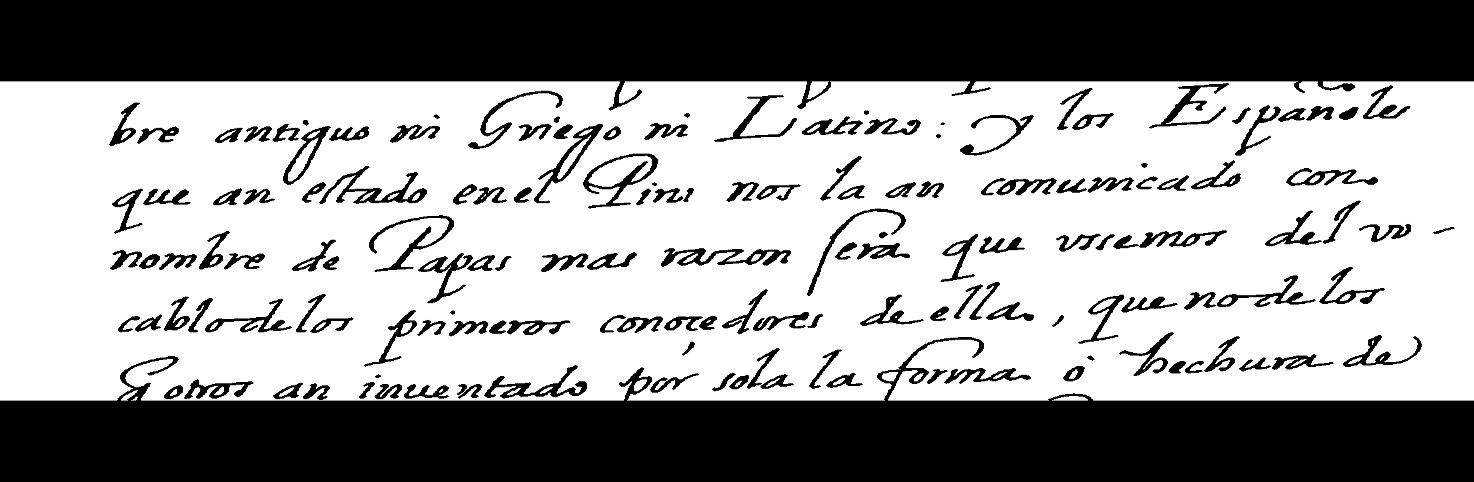 bre antiguo ni Griego ni Latino: y los Españoles
que an estado en el Piru nos la an comunicado con
nombre de Papas mas razon sera que usemos del vo-
cablo de los primeros conocedores de ella, que no de los
q otros an inventado por sola la forma ò hechura de